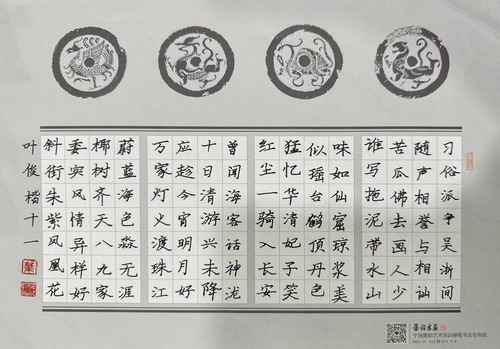 习俗派争吴浙间
随声相誉与相讪
苦瓜佛去画人少
谁写拖泥带水山
味如仙窟琼浆美
似瑶台鹤顶丹色
猛忆华清妃子笑
红尘一骑入长安
曾闻海客话神泷
十日清游兴未降
应趁今宵明月好
万家灯火渡珠江
蔚蓝海色淼无涯
椰树齐天八九家
委实风情异样好
斜街朱紫凤凰花
叶俊楷十一
艺术培训硬笔书法专用纸